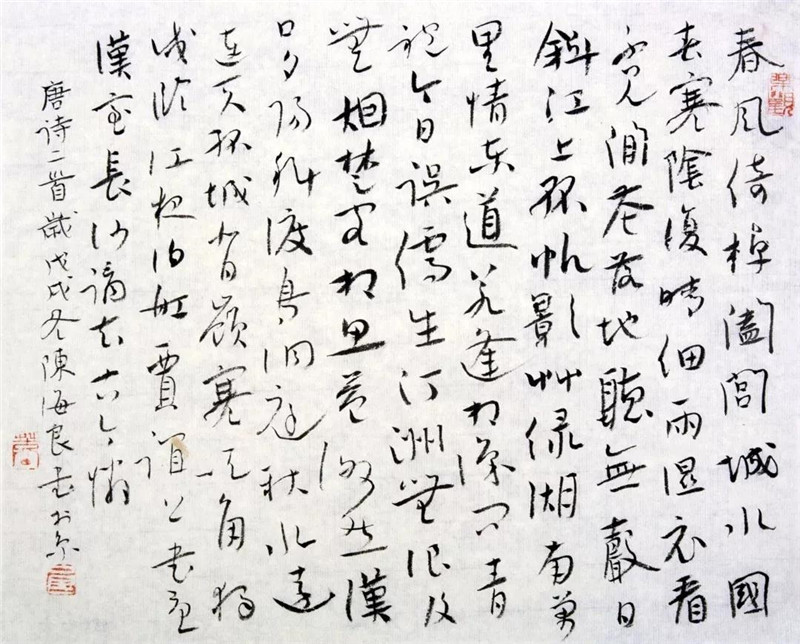 春風倚棹闔閭城水國
春寒陰復晴細雨濕衣看
不見閒花落地聽無聲日
斜江上孤帆影艸緑湖南萬
里情東道若逢相識問青
袍今日誤儒生汀洲無浪復
無烟楚客相思益渺然漢
口夕陽斜渡鳥洞庭秋水遠
連天孤城背嶺寒吹角獨
戍臨江夜泊船賈誼上書憂
漢室長沙謫去古今憐
唐詩二首歲戊戌冬陳海良書於京